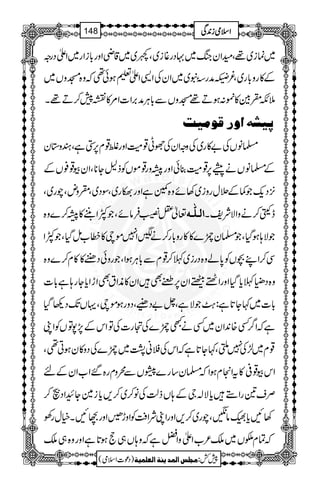 اسلامی زندگی
148
میں نمازی تھے، میدانِ جنگ میں بہادر غازی، کچہری میں قاضی اور بازار میں اعلیٰ درجہ
کے کاروباری، غرضیکہ مدرسہ نبوی میں ان کی ایسی اعلیٰ تعلیم ہوئی تھی کہ وہ مسجدوں میں
ملائکہ مقربین کا نمونہ ہوتے تھے مسجدوں سے باہر مدبرات امر کا نقشہ پیش کرتے تھے۔
پیشہ اور قومیت
مسلمانوں کی بے کاری کی وجہ ان کی جھوٹی قومیت اور غلط قوم پرستی ہے، ہندوستان
کے مسلمانوں نے پیشے پر قومیت بنائی اور پیشہ ور قوموں کو ذلیل جانا، ان بیوقوفوں کے
نزدیک جو کما کے حلال روزی کھائے وہ کمین ہے اور بھکاری، سودی، مقروض، چوری،
ڈکیتی کرنے والا شریف۔ اللہ تعالیٰ عقل نصیب فرمائے، جو کپڑا بُننے کا پیشہ کرے وہ
جولاہا ہوگیا، جو مسلمان چمڑے کا کاروبار کرنے لگیں انہیں موچی کا خطاب مل گیا، جو کپڑا
سی کر اپنے بچوں کو پالے وہ درزی کہلا کر قوم سے باہر ہوا، جو روئی دھننے کا کام کرے وہ
وہ دھنیا کہلایا گیا اور اٹھتے بیٹھتے ان پر طعنے بھی ہیں ان کا مذاق بھی اڑایا جارہا ہے بات
بات میں کہا جاتا ہے: ہٹ جولاہے، چل بے دھنیے، دور ہو موچی، یہاں تک دیکھا گیا
ہے کہ اگر کسی خاندان میں کسی نے کبھی چمڑے کی تجارت کی تو اس کے پڑپوتوں کو اپنی
قوم میں لڑکی نہیں ملتی، کہا جاتا ہے کہ اس کی فلانی پشت میں چمڑے کی دکان ہوتی تھی،
اس بیوقوفی کا یہ انجام ہوا کہ مسلمان سارے پیشوں سے محروم رہ گئے اب ان کے لئے
صرف تین راستے ہیں یا لالہ جی کے ہاں ذلت کی نوکری کریں یا زمین جائیداد بیچ کر
کھائیں یا بھیک مانگیں، چوری کریں اور اپنی شرافت کو اوڑھیں اور بچھائیں۔ خیال رکھو
کہ تمام ملکوں میں ملک عرب اعلیٰ وافضل ہے کہ وہاں ہی حج ہوتا ہے اور وہ ہی ملک
پیش کش: مجلس المدینۃ العلمیۃ (دعوتِ اسلامی)